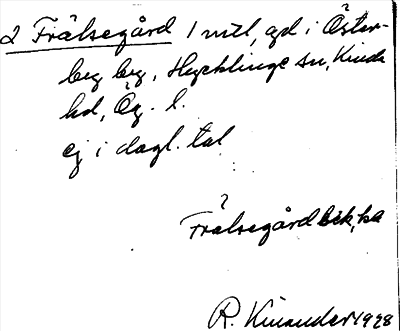 2 Frälsegård 1 mtl, gd i Öster-
beg beg, Hycklinge sn, Kinda
hd, Ög. l.
ej i dagl. tal
Frälsegård bek, ka
R. Kinander 1928